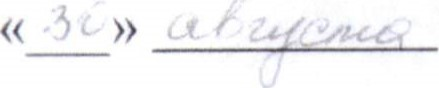 «30» августа